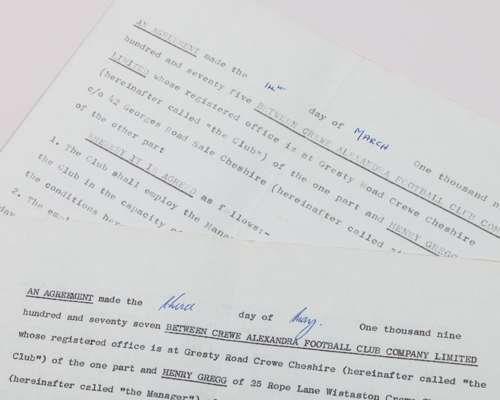 AN AGREEMENT made the 14th day of MARCH One thousand nine
hundred and seventy five BETWEEN CREWE ALEXANDRA FOOTBALL CLUB COM
LIMITED whose registered office is at Gresty Road Crewe Cheshire
(hereinafter called "the Club") of the one part and HENRY GREGG
c/o 42 Georges Road Sale Cheshire (hereinafter called
of the other part
WHEREBY IT IS AGREED as f llows:-
1. The Club shall employ the Mana
the Club in the capacity
the conditions
2. The
AN AGREEMENT made the third day of May. One thousand nine
hundred and seventy seven BETWEEN CREWE ALEXANDRA FOOTBALL CLUB COMPANY LIMITED
whose registered office is at Gresty Road Crewe Cheshire (hereinafter called "the
Club") of the one part and HENRY GREGG of 25 Rope Lane Wistaston Crewe
(hereinafter called "the Manager")